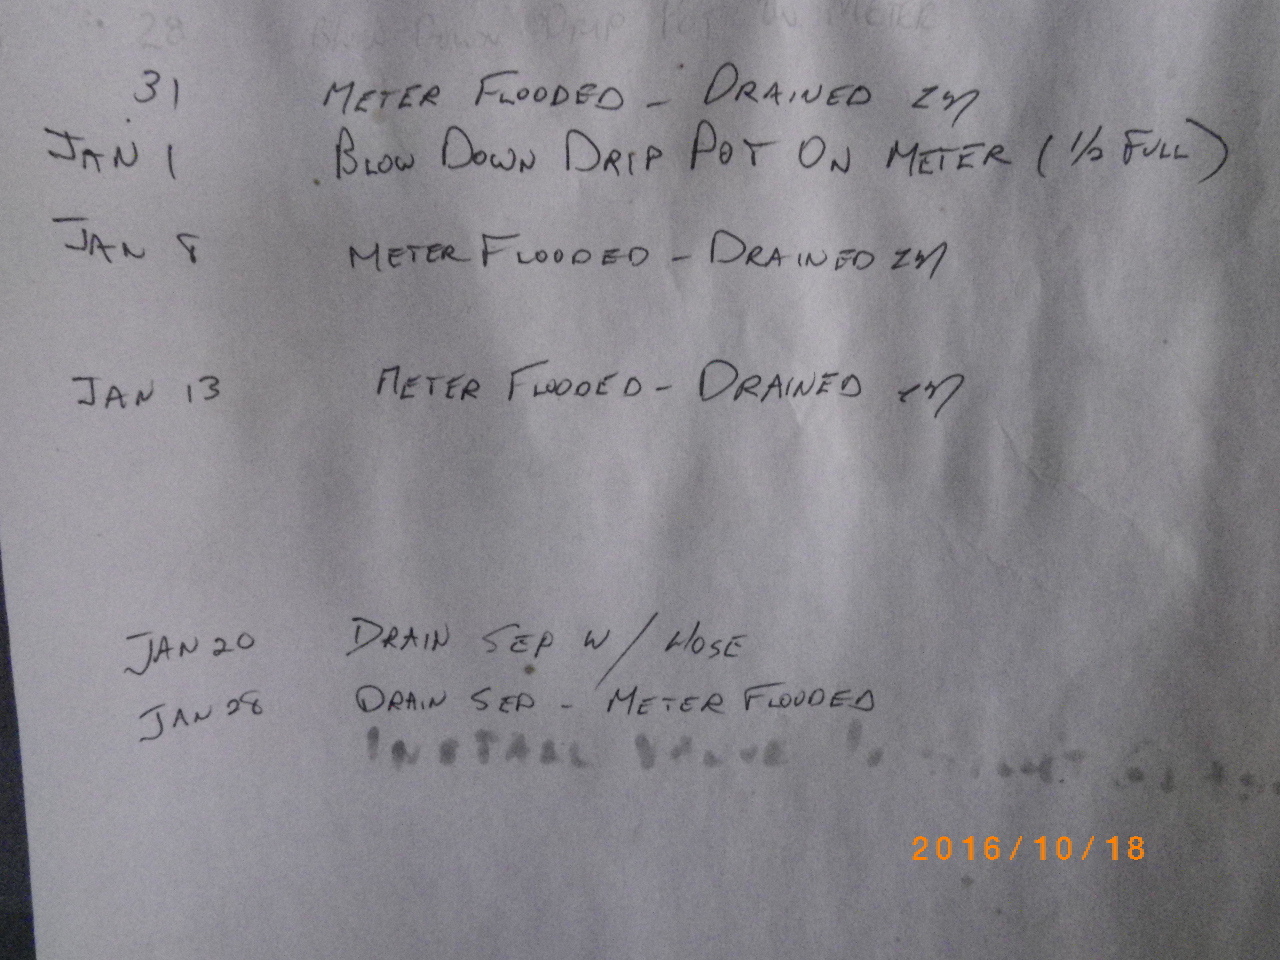 28 BLOW DOWN DRIP POT ON METER
31 METER FLOODED - DRAINED
JAN 1 BLOW DOWN DRIP POT ON METER (1/2 FULL)
JAN 8 METER FLOODED - DRAINED
JAN 13 METER FLOODED - DRAINED
JAN 20 DRAIN SEP W/ HOSE
JAN 28 DRAIN SEP - METER FLOODED
INSTALL VALVE
2016/10/18